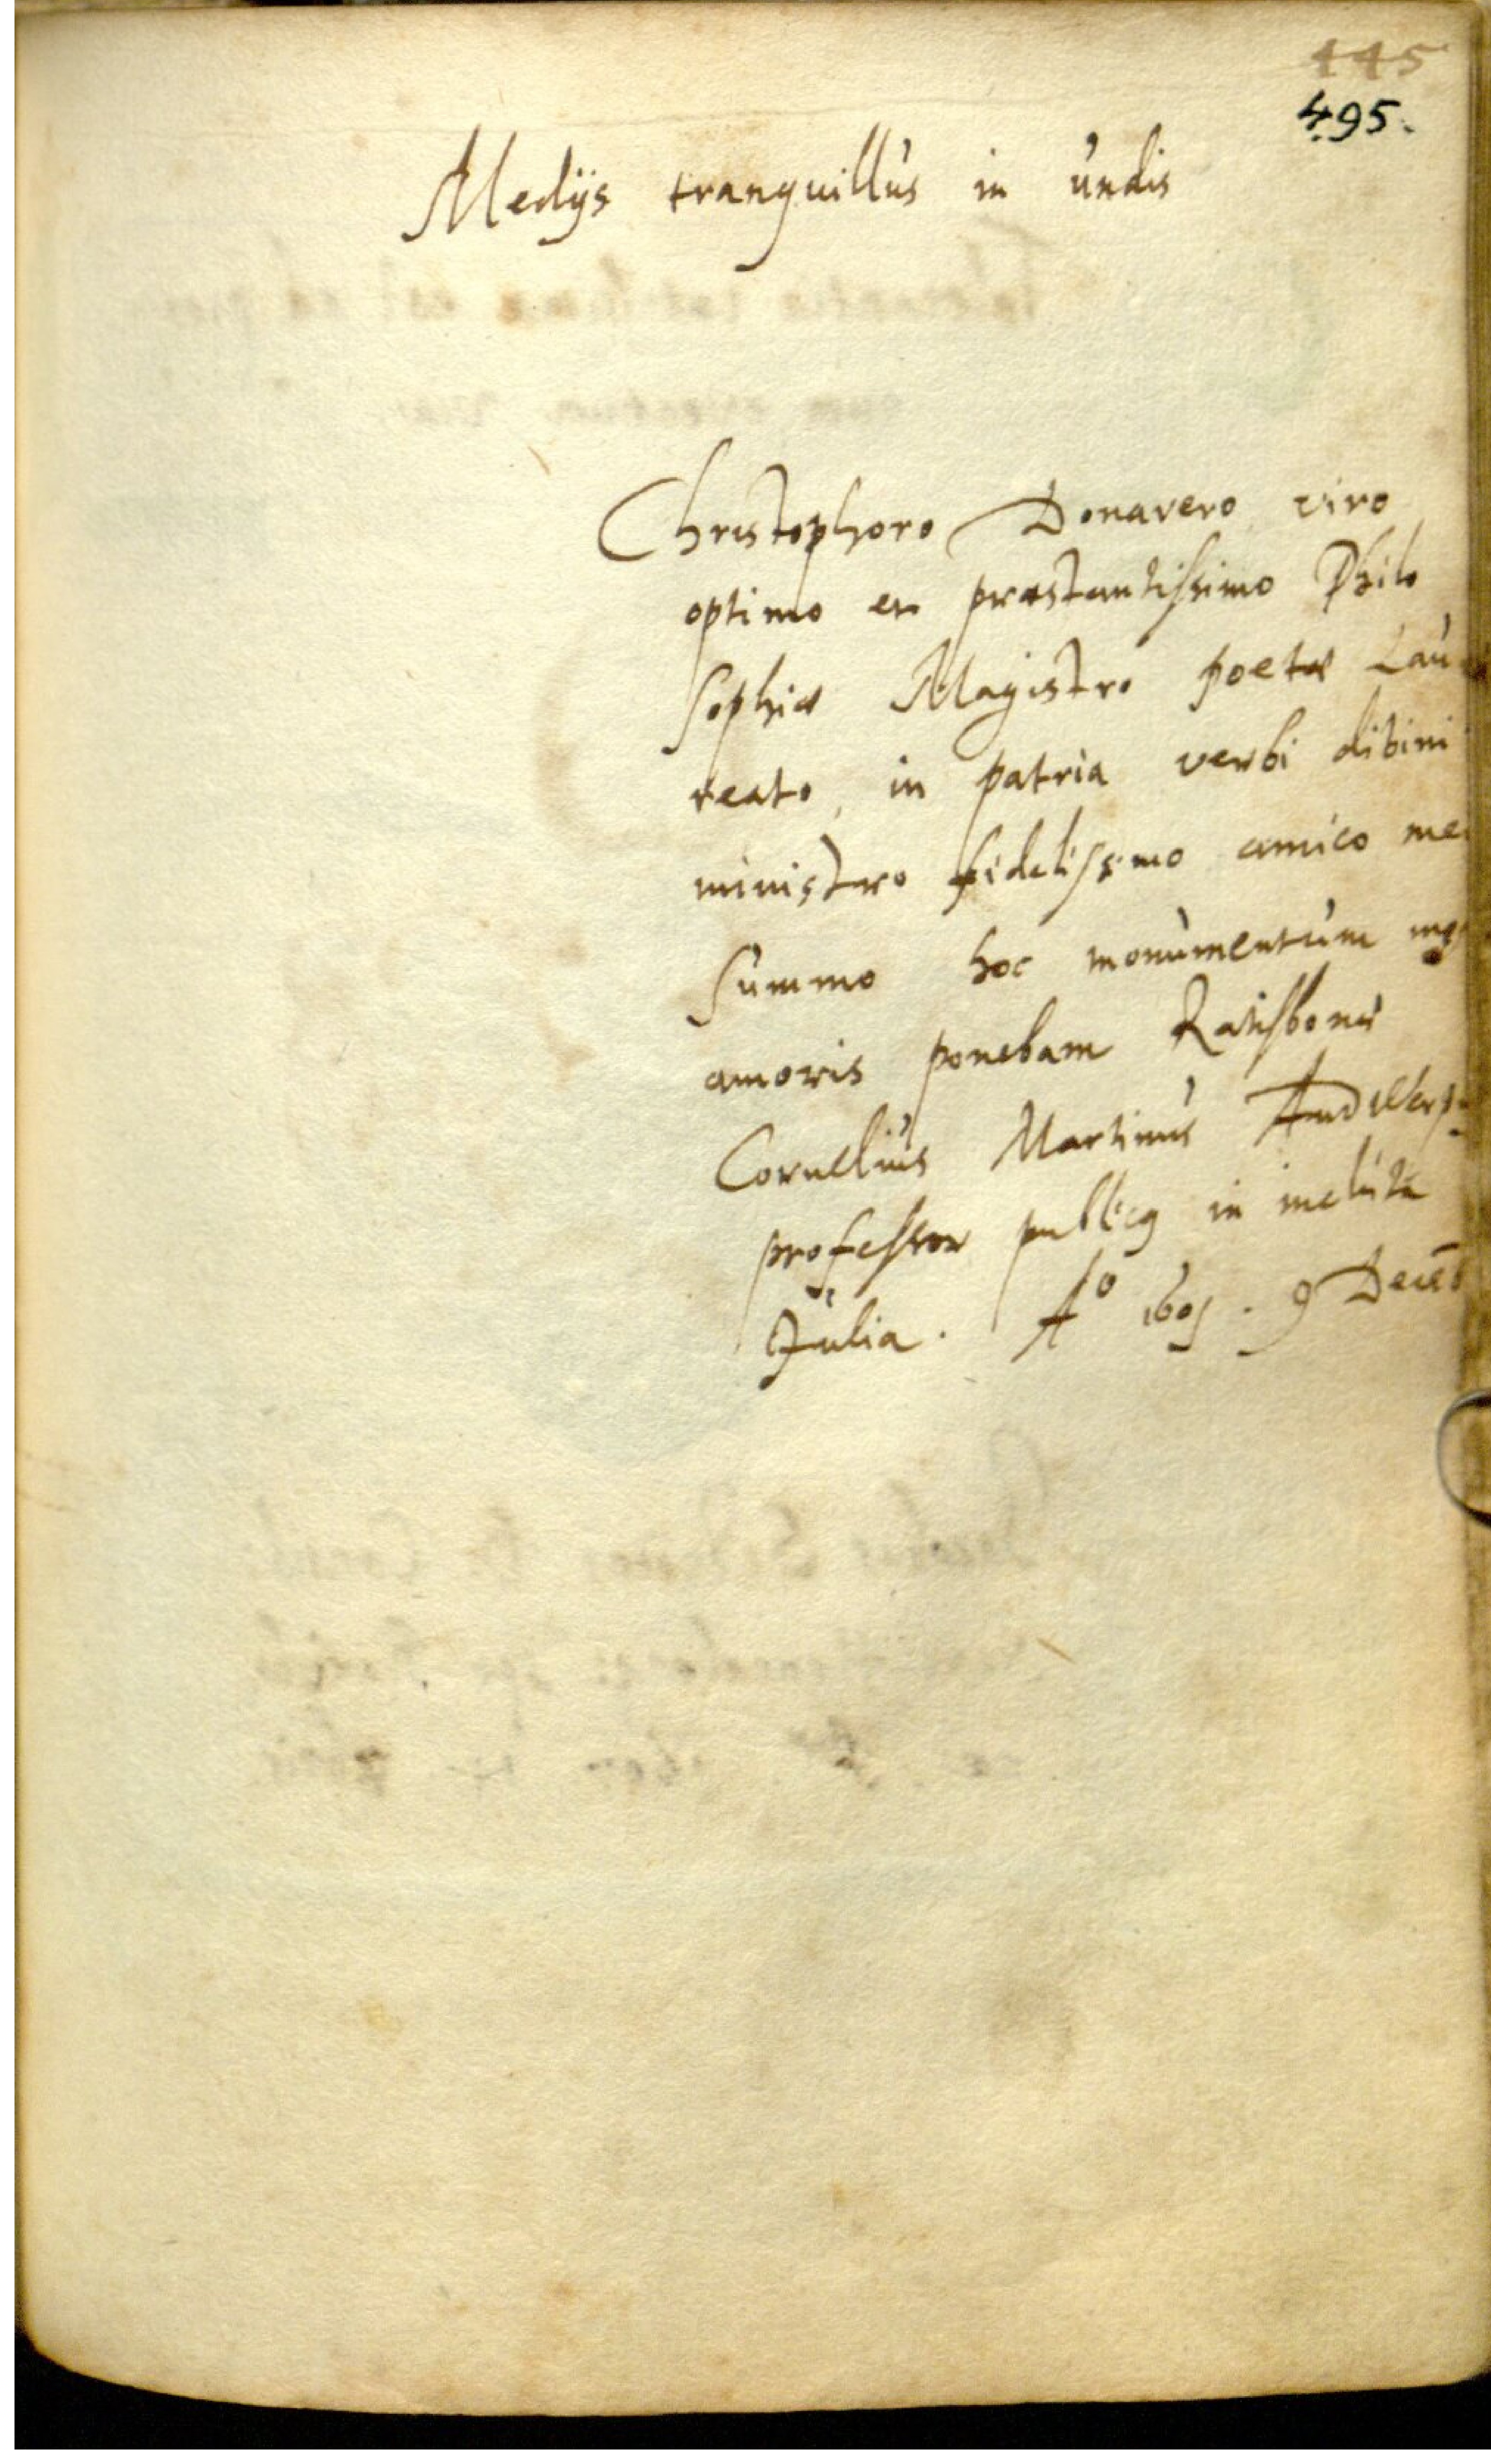 445
495.
Medijs tranquillus in undis
Christophoro Donavero viro
optimo et præstantissimo Philo
sophiæ Magistro poetæ Lau
reato, in patria verbi divini
ministro fidelissimo amico meo
summo hoc monumentum
amoris ponebam Ratisbonæ
Cornelius Martinus Andwerp
professor publicq in incluta
Julia. Aº 1601. 9 Decēb